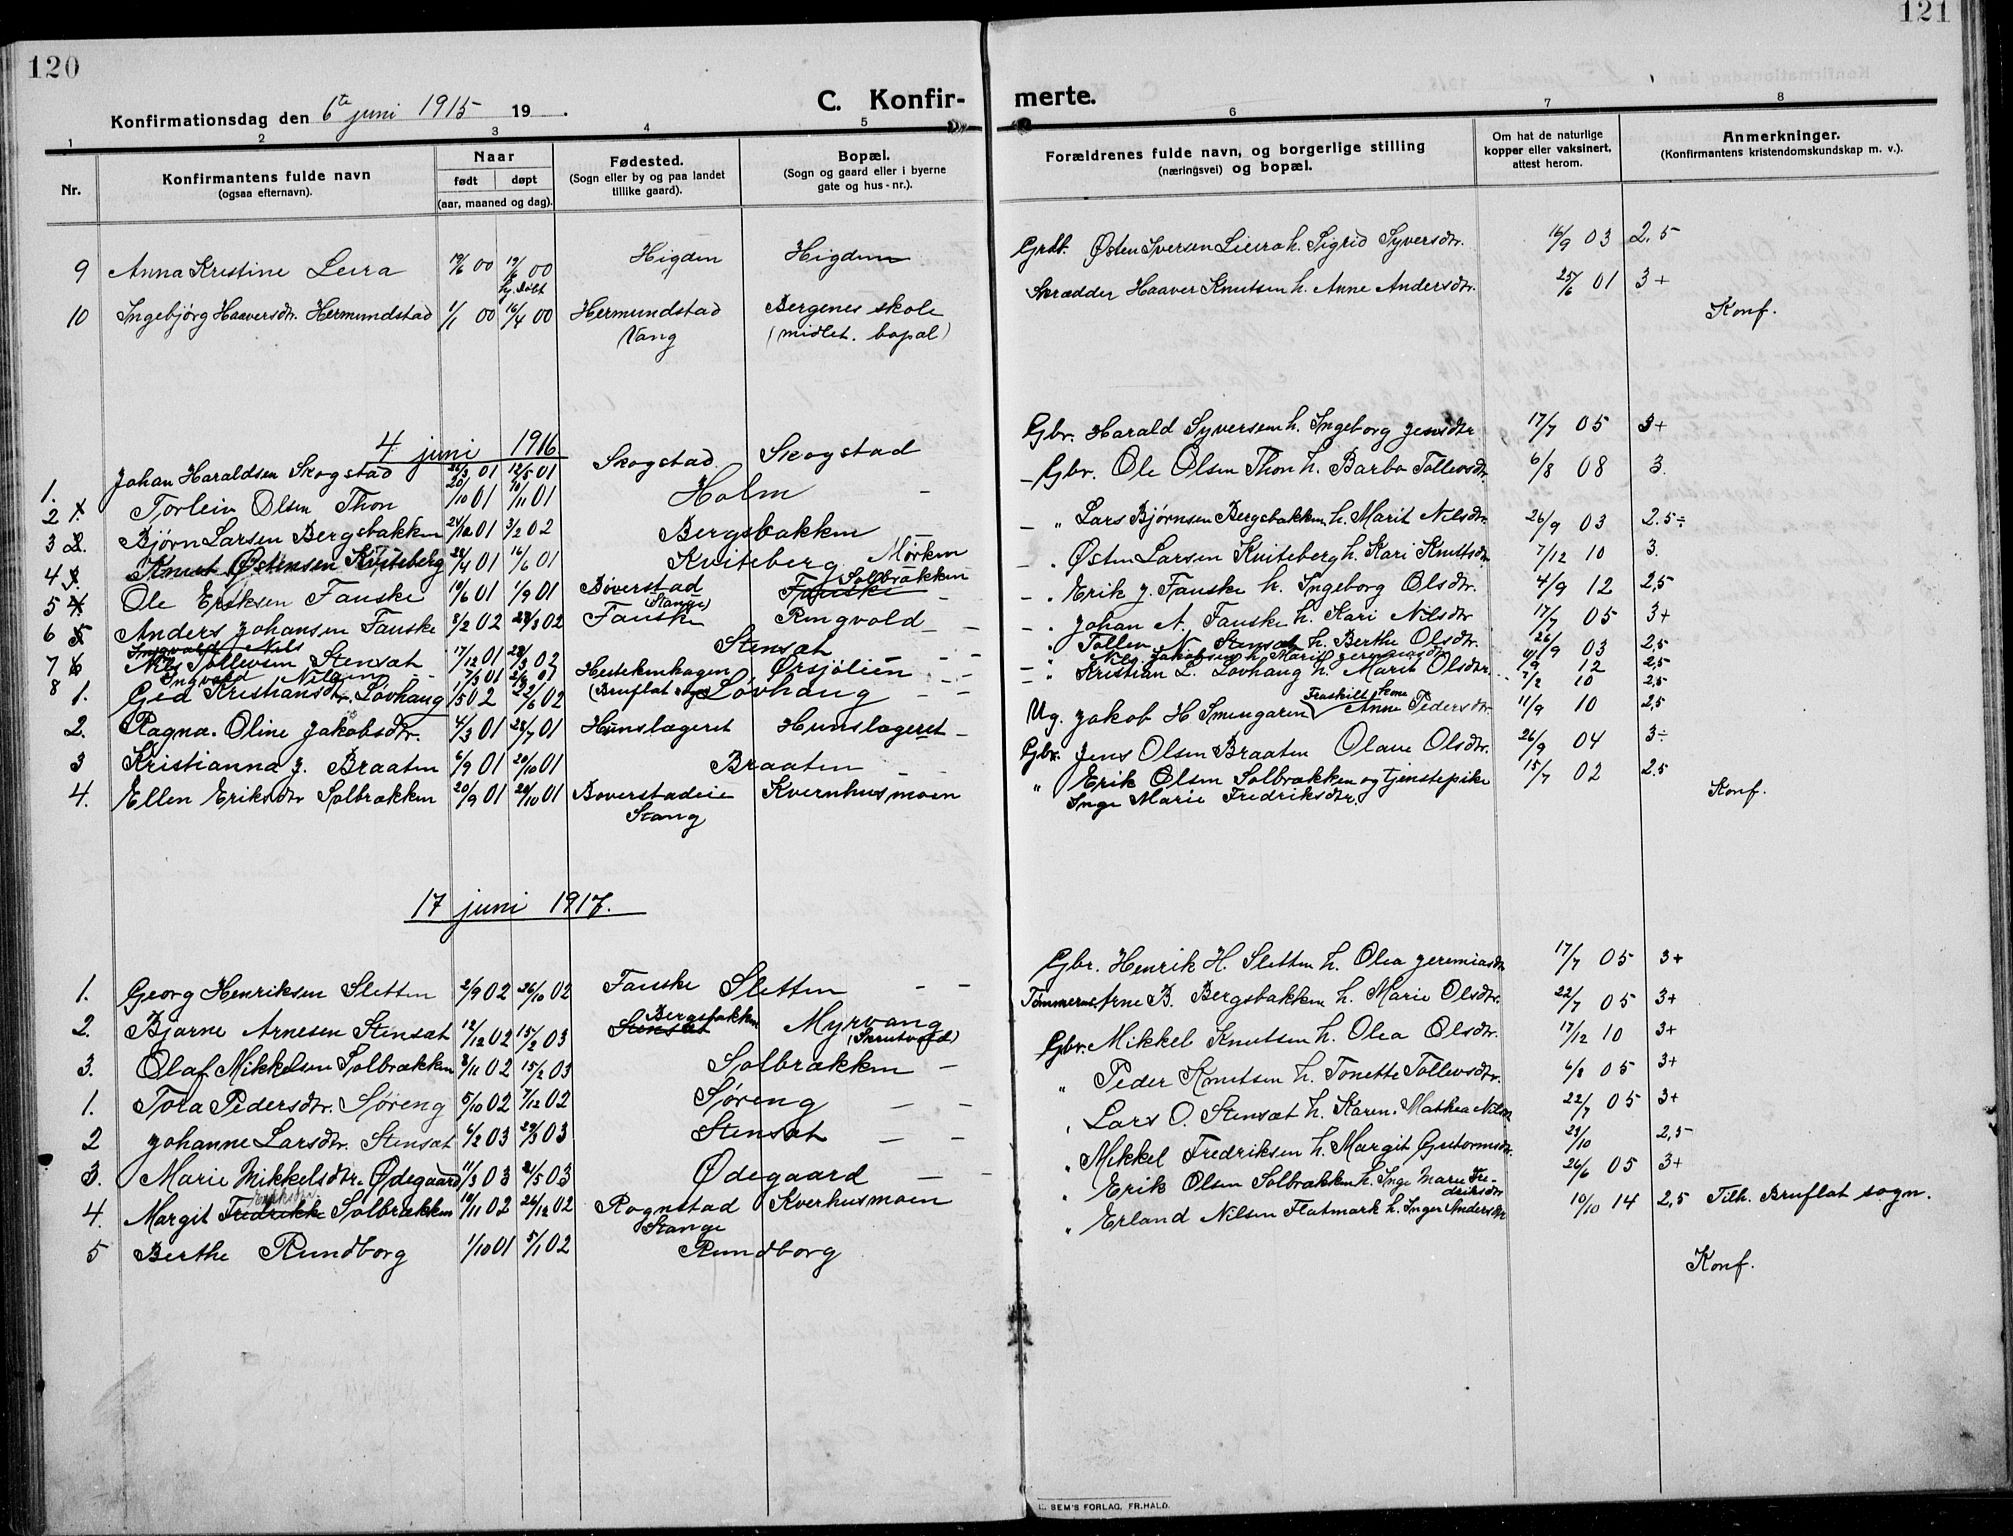 120
121
Konfirmationsdag den 6te juni 1915 19 .
C. Konfir- merte.
1 2 3 4 5 6 7 8
Nr.
Konfirmantens fulde navn
(ogsaa efternavn).
Naar
født døpt
(aar, maaned og dag).
Fødested.
(Sogn eller by og paa landet
tillike gaard).
Bopæl.
(Sogn og gaard eller i byerne
gate og hus-nr.).
Forældrenes fulde navn, og borgerlige stilling
(næringsvei) og bopæl.
Om hat de naturlige
kopper eller vaksinert,
attest herom.
Anmerkninger.
(Konfirmantens kristendomskundskap m. v.).
9 Anna Kristine Leira 19/6 00 19/6 00 Higden Higden Grdbr. Østen Iversen Leira h. Sigrid Syversdtr. 16/9 03 2,5
hj. døbt
10 Ingebjørg Haaversdtr. Hermundstad 1/1 00 16/4 00 Hermundstad Bergenes skole Skrædder Haaver Knutsen h. Anne Andersdtr. 25/6 01 3+
Vang (midlet. bopæl)
Konf.
4 juni 1916
1. Johan Haraldsen Skogstad 26/3 01 12/5 01 Skogstad Skogstad Gbr. Harald Syversen h. Ingeborg Jensdtr 17/7 05 3+
2 1. Torlein Olsen Thon 20/10 01 10/11 01 Holm - Gbr. Ole Olsen Thon h. Barbo Tollevsdtr. 6/8 08 3.
3 2. Bjørn Larsen Bergsbakken 24/12 01 3/2 02 Bergsbakken " Lars Bjørnsen Bergsbakken h. Marit Nilsdtr. 26/9 03 2.5÷
4 3. Knut Østensen Kviteberg 24/4 01 16/6 01 Kviteberg Mørken Østen Larsen Kviteberg h. Kari Knutsdtr 7/12 10 3.
5 4 Ole Eriksen Fauske 19/6 01 1/9 01 Bøverstad Fauske Solbrækken Erik J. Fauske h. Ingeborg Olsdtr. 4/9 12 2,5
(Stange)
6 5 Anders Johansen Fauske 8/2 02 28/3 02 Fauske Ringvold Johan A. Fauske h. Kari Nilsdtr 17/7 05 3+
Ingvald Nils
7 6 Nils Tollevsen Stensæt 17/12 01 28/3 02 Stensæt Tollev N. Stensæt h. Berthe Olsdtr. 26/9 03 2,5
8 Ingvald Nilsen 17/3 01 Hestekinhagen Ørsjølien Nils Jakobsen h. Marie Jeremiasdtr 12 2,5
(Bruflat sogn)
1. Gea Kristiansdtr. Løvhaug 1/5 02 22/6 02 Løvhaug Kristian L. Løvhaug h. Marit Olsdtr. 7/2 10 2,5
2. Ragna Oline Jakobsdtr. 4/3 01 28/7 01 Hunslageret Hunslageret Ug. Jakob H. Smengaren Fraskilt kone Anne Pedersdtr. 11/9 10 2,5
3 Kristianna J. Braaten 6/9 01 20/10 01 Braaten Gbr. Jens Olsen Braaten Olave Olsdtr. 26/9 04 3÷
4. Ellen Eriksdtr Solbrækken 20/9 01 20/10 01 Bøverstadeie Kvernhusmoen " Erik Olsen Solbrækken og tjenstepike 15/7 02 2.5
Stang Inge Marie Fredriksdtr.
Konf.
17 juni 1917.
1. Georg Henriksen Sletten 2/9 02 26/10 02 Fauske Sletten Gbr. Henrik H. Sletten h. Olea Jeremiasdtr 17/7 05 3+
2. Bjarne Arnesen Stensæt 12/12 02 15/2 03 Stensæt Bergsbakken Myrvang Tømmerm. Arne B. Bergsbakken h. Marie Olsdtr. 22/7 05 3+
(Skrutvold)
3. Olaf Mikkelsen Solbrækken 8/11 02 15/2 03 Solbrækken Gbr. Mikkel Knutsen h. Olea Olsdtr. 17/12 10 3+
1. Tora Pedersdtr. Søreng 5/10 02 7/12 02 Søreng " Peder Knutsen h. Tonette Tollevsdtr. 6/8 05 3+
2 Johanne Larsdtr. Stensæt 6/2 03 29/3 03 Stensæt Lars O. Stensæt h. Karen Mathea Nilsen 22/7 05 3+
3. Marie Mikkelsdtr. Ødegaard 11/3 03 21/5 03 Ødegaard " Mikkel Fredriksen h. Margit Guttormsdtr. 23/10 2,5
4. Margit Fredrikke Eriksdtr. Solbrækken 10/11 02 26/12 02 Rognstad Kverhusmoen Erik Olsen Solbrækken h. Inge Marie Fre-
driksdtr 26/6 05 3+
Stange
5 Berthe Rundborg 1/10 01 5/1 02 Rundborg " Erland Nilsen Flatmark h. Inger Andersdtr 10/10 14 2,5 Tilh. Bruflat sogn.
Konf.
SEM'S FORLAG, FR.HALD.